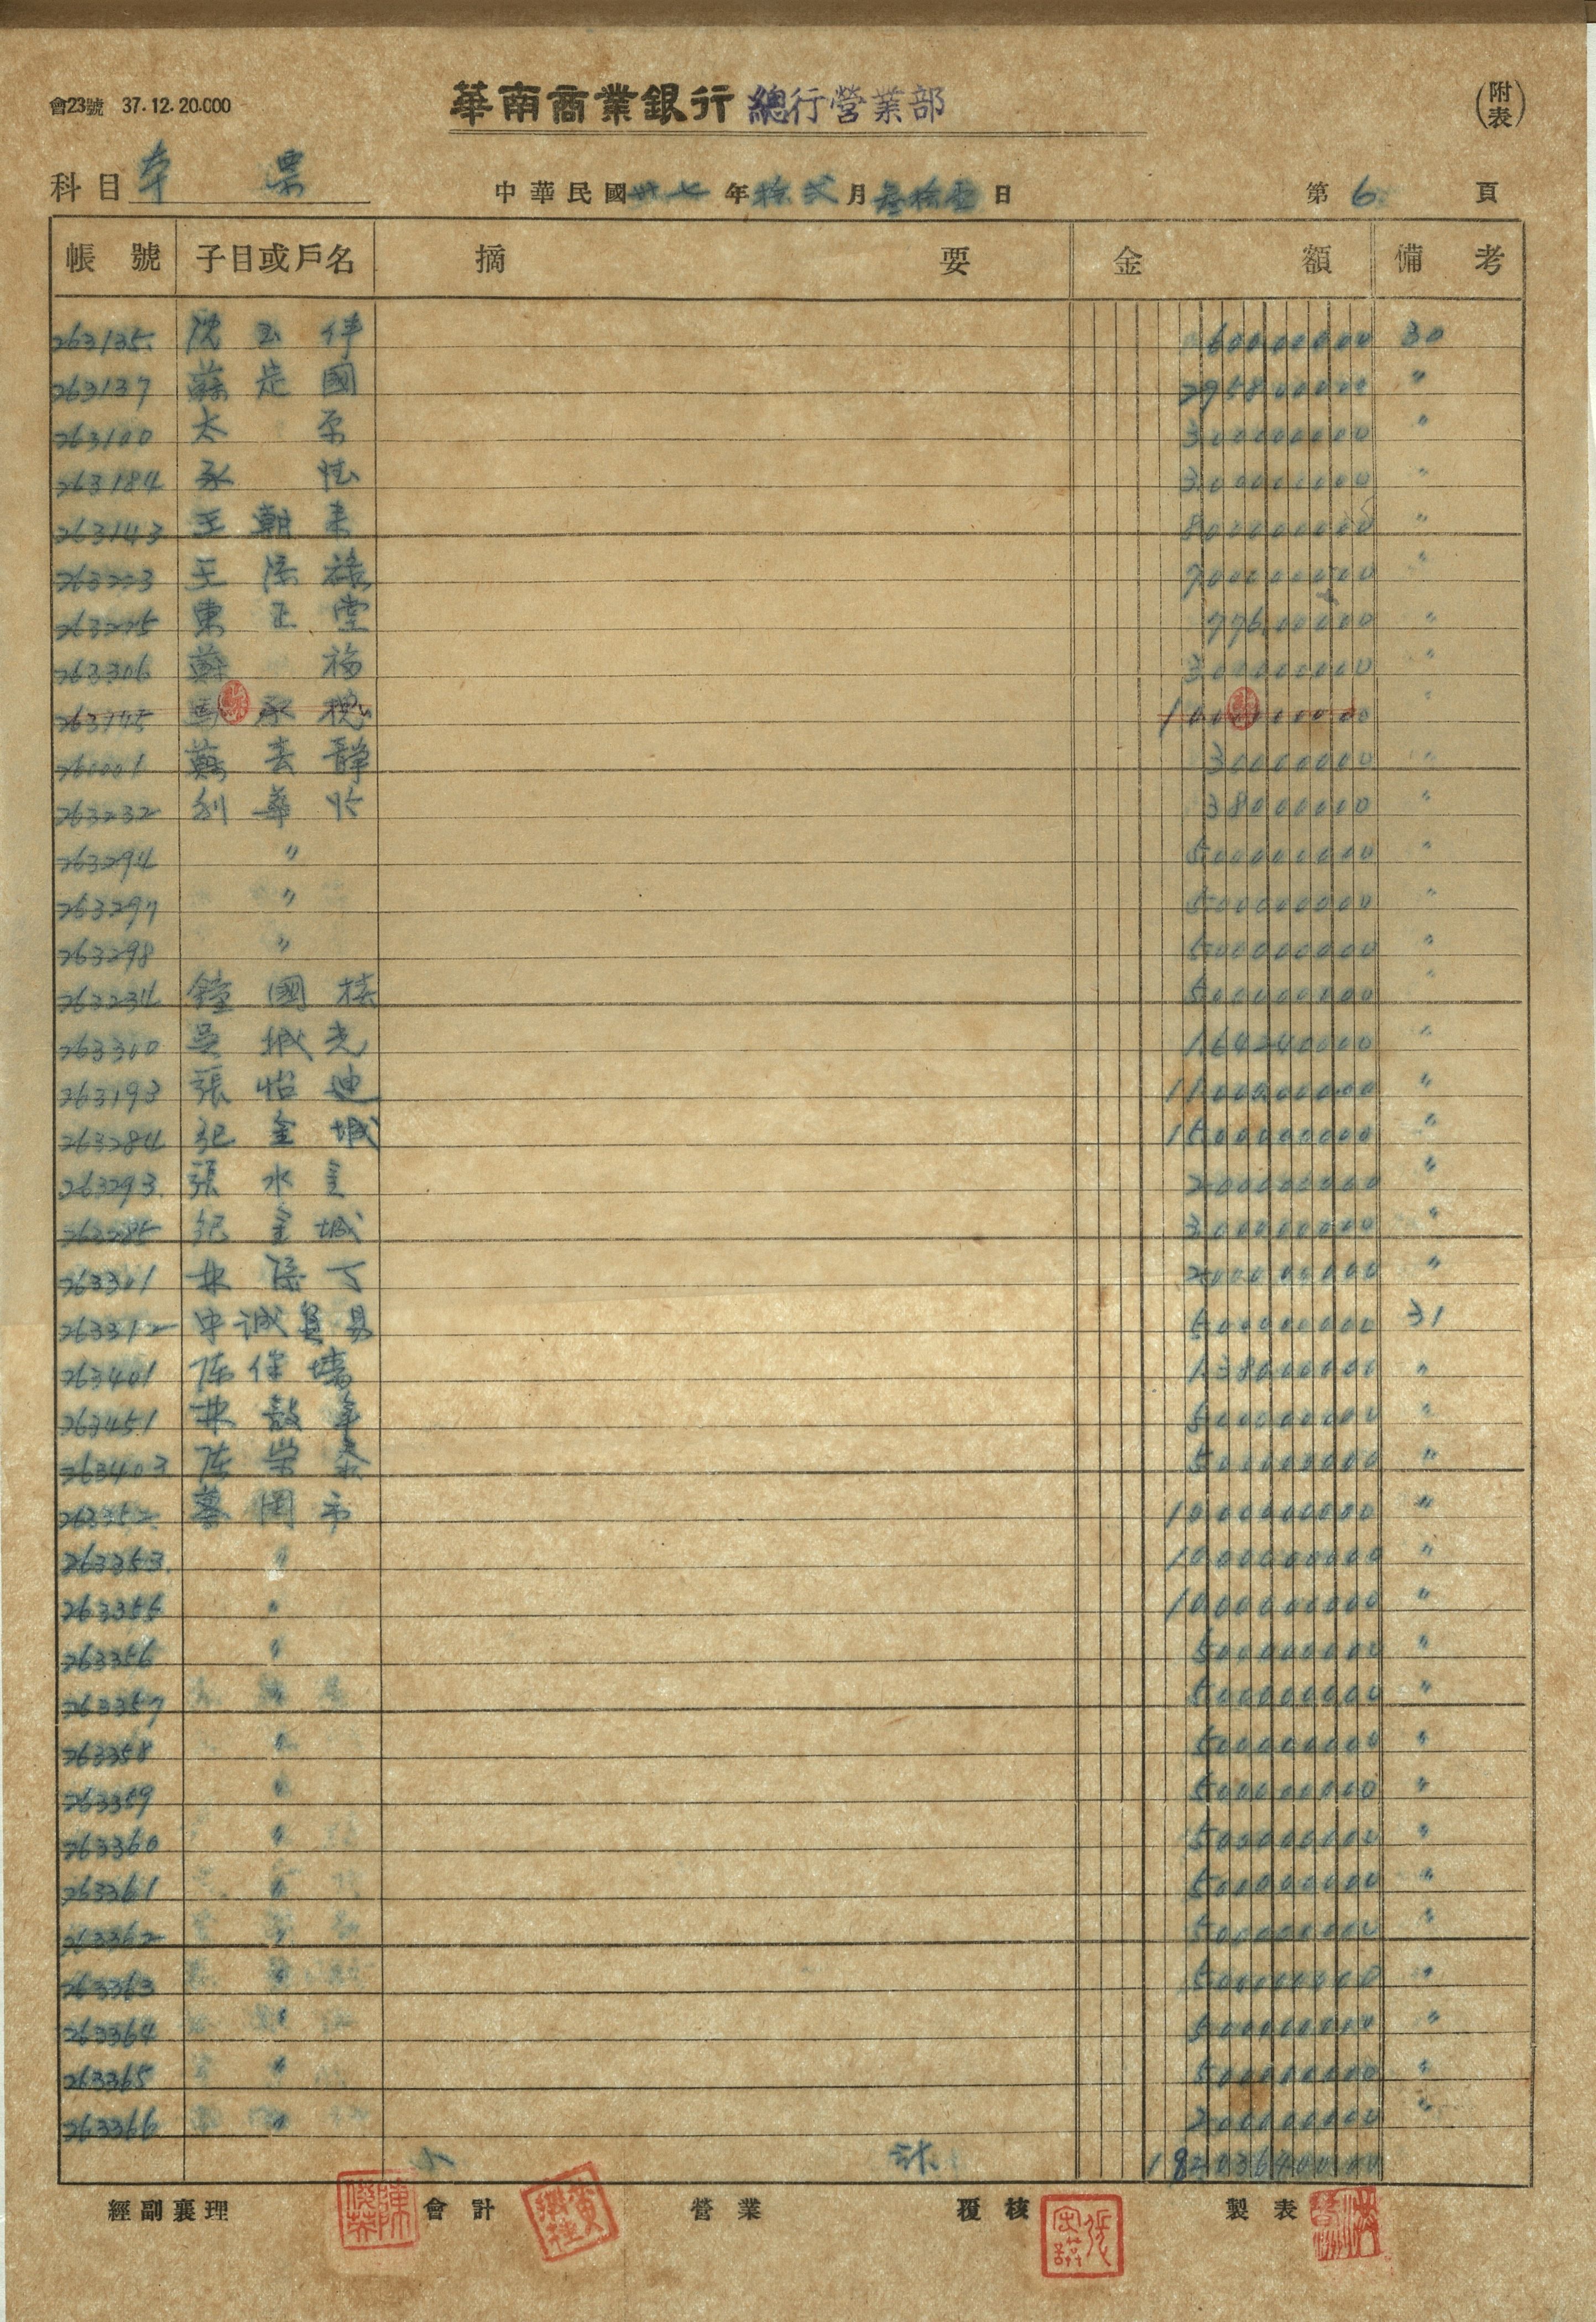 會23號 37.12.20.000
華南商業銀行 總行營業部
(附表)
科目 本票
中華民國卅七年拾弍月叁拾壹日
第6頁
帳號 子目或戶名 摘要 金額 備考
263135 沈玉伴 600.00000 30
263137 蘇 國 295800000 〃
263100 太 300000000 〃
263184 永 300000000 〃
263143 王朝來 800000000 〃
263223 王添祿 700000000 〃
263225 東正堂 77600000 〃
263306 蘇福 300000000 〃
263145 馬永穗 1000000000 〃
260001 蘇 靜 30000000 〃
263232 利華行 38000000 〃
263294 〃 500000000 〃
263297 〃 500000000 〃
263298 〃 500000000 〃
263234 鐘國 500000000 〃
263300 吳城光 164240000 〃
263193 張怡迪 1100000000 〃
263284 紀金城 1500000000 〃
263293 張水 200000000 〃
263285 紀金城 300000000 〃
263301 林添丁 200000000 〃
263312 中誠貿易 500000000 31
263401 陈保墻 138000000 〃
263451 林 500000000 〃
263403 陈榮泰 500000000 〃
263352 蔡 市 1000000000 〃
263353 〃 1000000000 〃
263355 〃 1000000000 〃
263356 〃 500000000 〃
263357 〃 500000000 〃
263358 〃 500000000 〃
263359 〃 500000000 〃
263360 〃 500000000 〃
263361 〃 500000000 〃
263362 〃 500000000 〃
263363 〃 500000000 〃
263364 〃 500000000 〃
263365 〃 500000000 〃
263366 〃 200000000 〃
小計 18203640000
經副襄理 會計 營業 覆核 製表